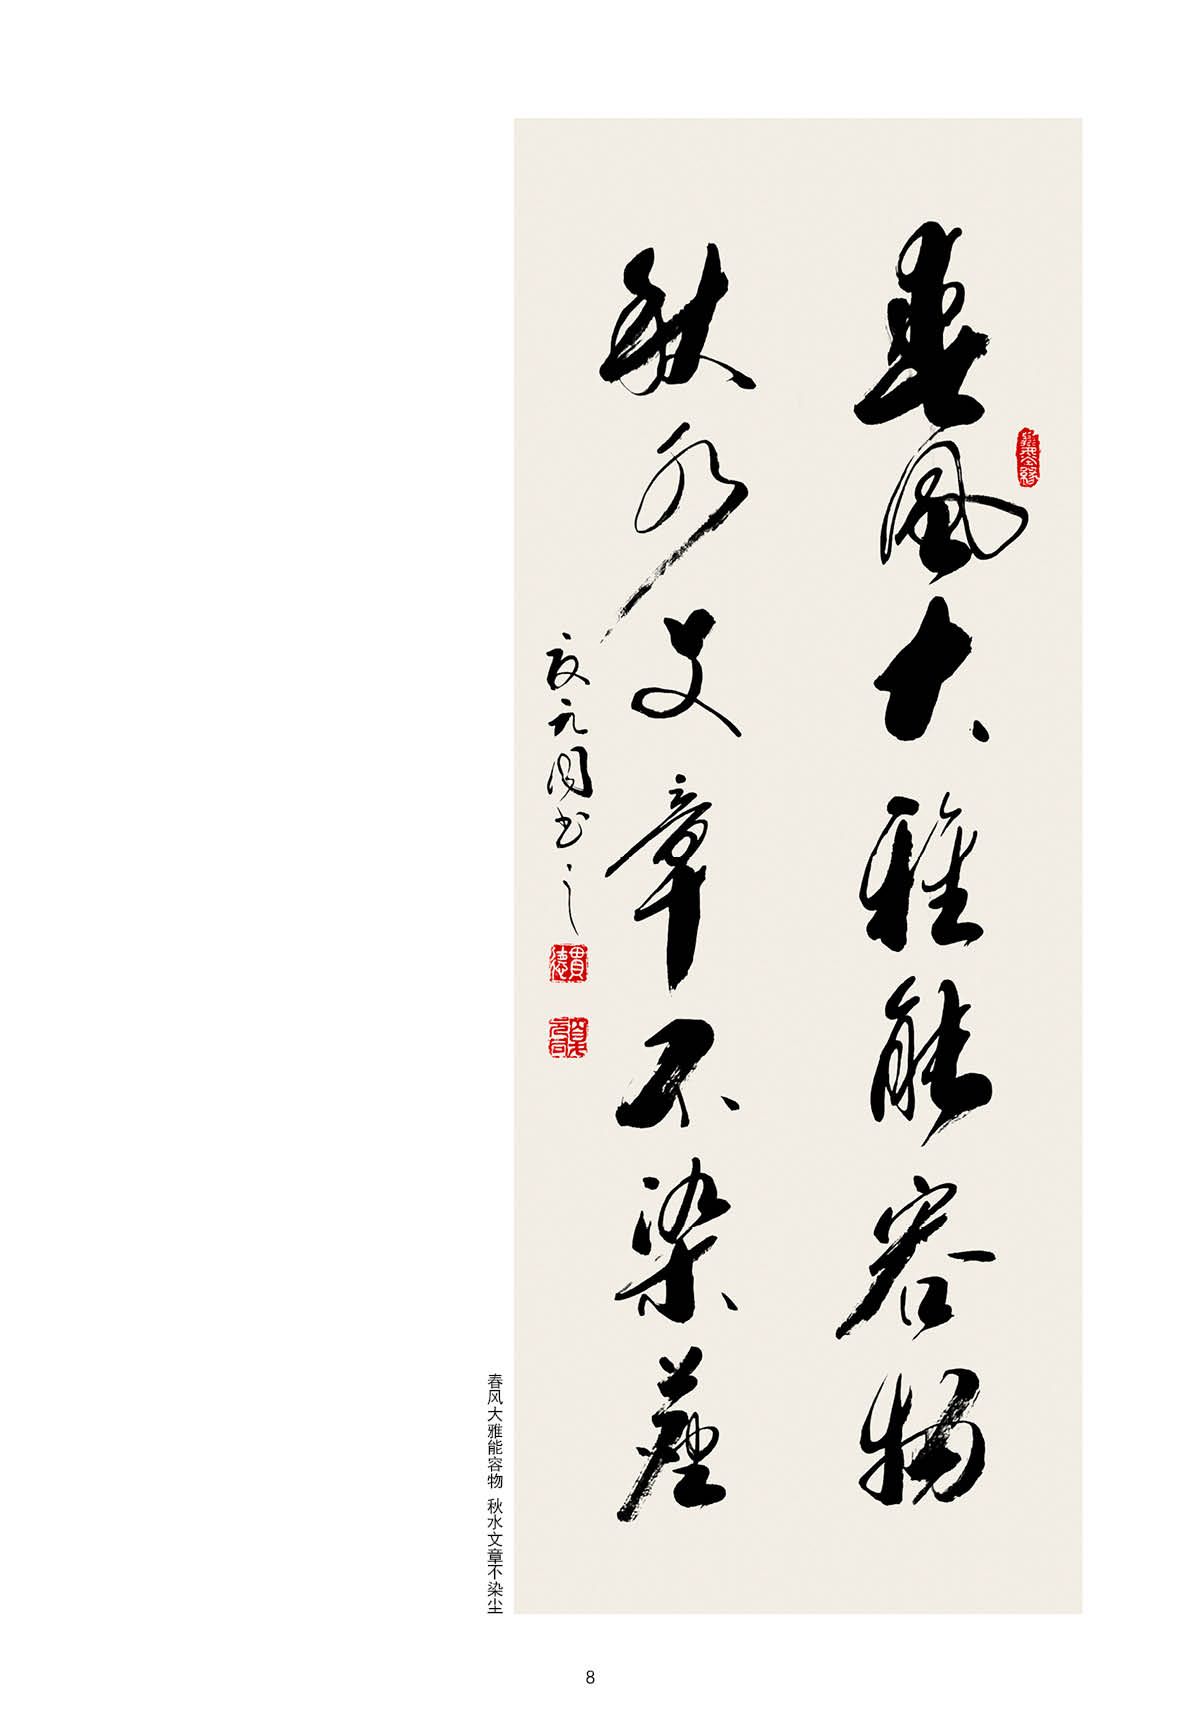 春风大雅能容物
秋水文章不染尘
夏元同书之
贯德
春风大雅能容物 秋水文章不染尘
8